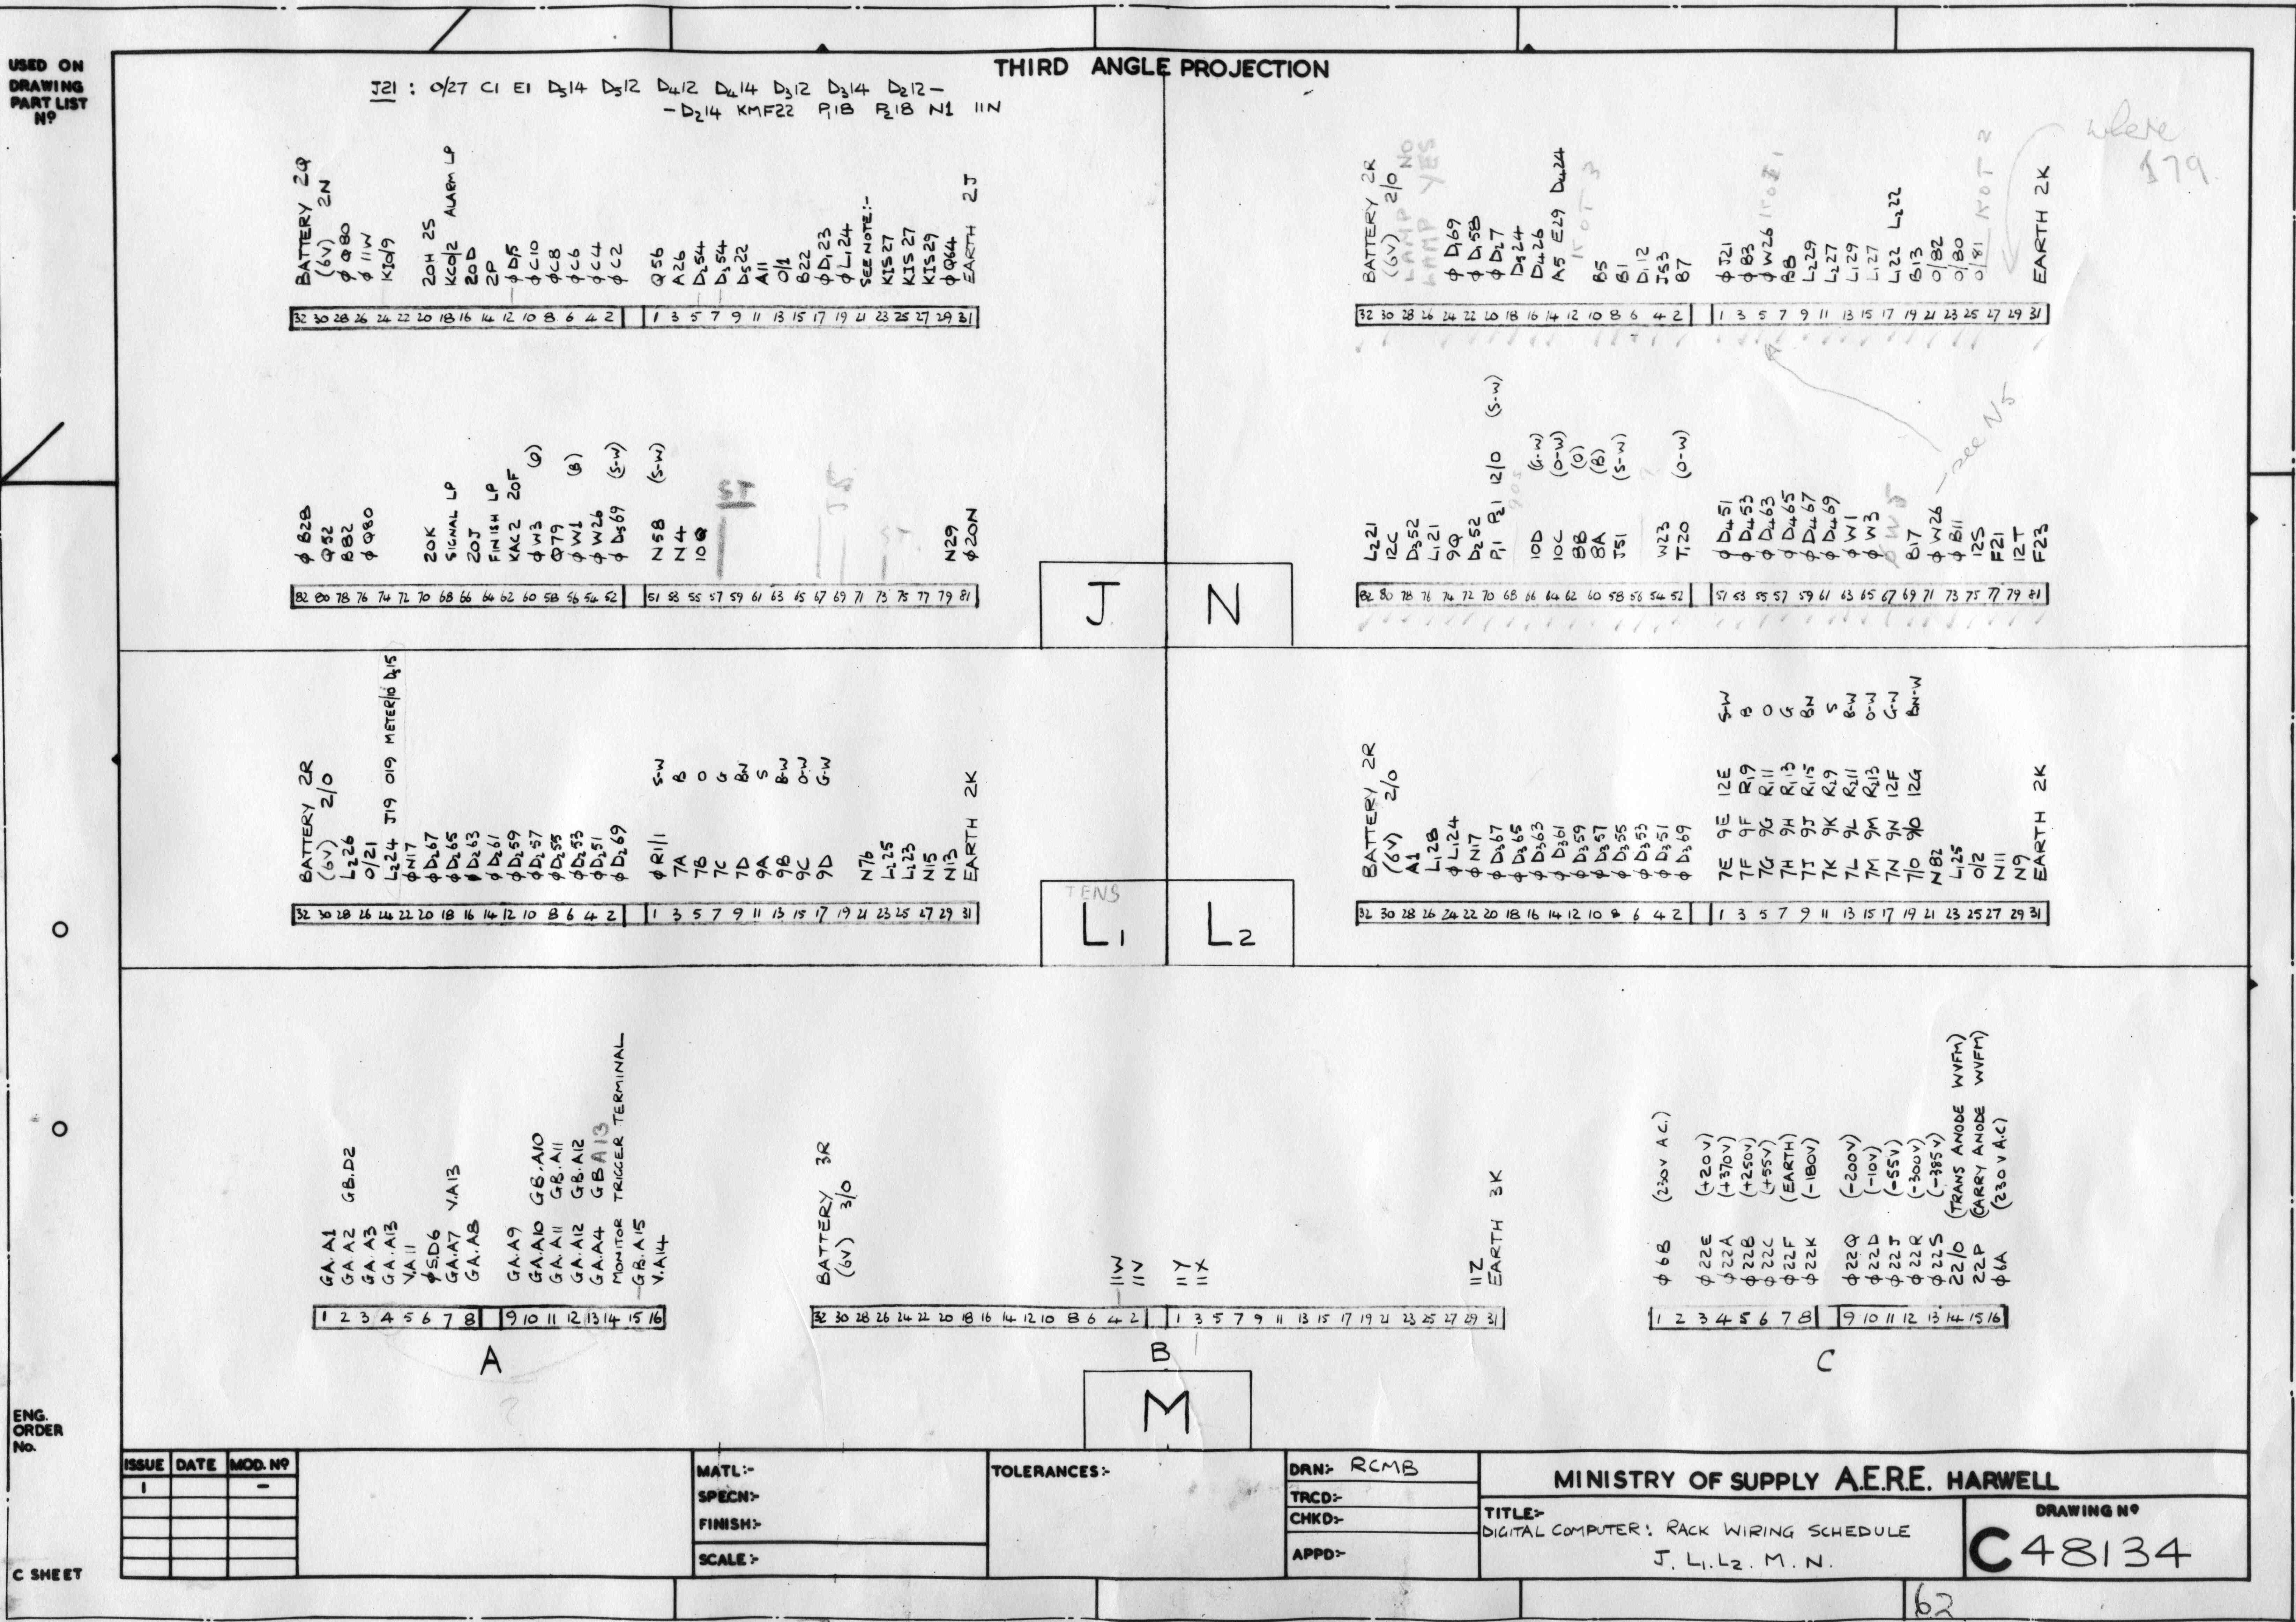 THIRD ANGLE PROJECTION
USED ON
DRAWING
PART LIST
Nº
J21 : 0/27 C1 E1 D514 D512 D412 D414 D312 D314 D212 -
- D214 KMF22 P118 P218 N1 11N
BATTERY 2Q
(6V) 2N
φ Q80
φ 11W
K10/9
20H 2S
KC0/2 ALARM LP
20D
2P
φ D15
φ C10
φ C8
φ C6
φ C4
φ C2
Q56
A26
D254
D354
D522
A11
0/1
B22
φ D123
φ L124
SEE NOTE:-
KIS27
KIS27
KIS29
φ Q64
EARTH 2J
32 30 28 26 24 22 20 18 16 14 12 10 8 6 4 2 1 3 5 7 9 11 13 15 17 19 21 23 25 27 29 31
BATTERY 2R
(6V) 2/0
LAMP NO
LAMP YES
φ D169
φ D158
φ D27
D524
D426
A5 E29 D424
B5
B1
D112
J53
B7
φ J21
φ B3
φ W26
B8
L229
L227
L129
L127
L122 L222
B13
0/82
0/80
0/81
EARTH 2K
where
179
32 30 28 26 24 22 20 18 16 14 12 10 8 6 4 2 1 3 5 7 9 11 13 15 17 19 21 23 25 27 29 31
φ B28
Q52
B82
φ Q80
20K
SIGNAL LP
20J
FINISH LP
KAC2 20F
φ W3 (O)
Q79
φ W1 (B)
φ W26
φ D569 (S-W)
N58 (S-W)
N4
10Q
ST
ST
N29
φ 20N
82 80 78 76 74 72 70 68 66 64 62 60 58 56 54 52 51 53 55 57 59 61 63 65 67 69 71 73 75 77 79 81
J
N
L221
12C
D352
L121
9Q
D252
P11 P21 12/0 (S-W)
10D (G-W)
10C (O-W)
8B (O)
8A (B)
J51 (S-W)
W23
T120 (O-W)
φ D451
φ D453
φ D463
φ D465
φ D467
φ D469
φ W1
φ W3
B17
φ W26
φ B11
12S
F21
12T
F23
see N5
82 80 78 76 74 72 70 68 66 64 62 60 58 56 54 52 51 53 55 57 59 61 63 65 67 69 71 73 75 77 79 81
BATTERY 2R
(6V) 2/0
L226
0/21
L224 J19 019 METER/10 D515
φ N17
φ D267
φ D265
φ D263
φ D261
φ D259
φ D257
φ D255
φ D253
φ D251
φ D269
φ R1/1 S-W
7A B
7B O
7C G
7D BN
9A S
9B B-W
9C O-W
9D G-W
N76
L225
L223
N15
N13
EARTH 2K
32 30 28 26 24 22 20 18 16 14 12 10 8 6 4 2 1 3 5 7 9 11 13 15 17 19 21 23 25 27 29 31
TENS
L1
L2
BATTERY 2R
(6V) 2/0
A1
L128
φ L124
φ N17
φ D367
φ D365
φ D363
φ D361
φ D359
φ D357
φ D355
φ D353
φ D351
φ D369
7E 9E 12E S-W
7F 9F R19 B
7G 9G R111 O
7H 9H R113 G
7J 9J R115 BN
7K 9K R29 S
7L 9L R211 B-W
7M 9M R213 O-W
7N 9N 12F G-W
7/0 9/0 12G BN-W
N82
L125
0/2
N11
N9
EARTH 2K
32 30 28 26 24 22 20 18 16 14 12 10 8 6 4 2 1 3 5 7 9 11 13 15 17 19 21 23 25 27 29 31
GA.A1
GA.A2 GB.D2
GA.A3
GA.A13
V.A11
φ S.D6
GA.A7 V.A13
GA.A8
GA.A9
GA.A10 GB.A10
GA.A11 GB.A11
GA.A12 GB.A12
GA.A4 GB A13
MONITOR TRIGGER TERMINAL
GB.A15
V.A14
1 2 3 4 5 6 7 8 9 10 11 12 13 14 15 16
A
BATTERY 3R
(6V) 3/0
11W
11V
11Y
11X
11Z
EARTH 3K
32 30 28 26 24 22 20 18 16 14 12 10 8 6 4 2 1 3 5 7 9 11 13 15 17 19 21 23 25 27 29 31
B
φ 6B (230V A.C.)
φ 22E (+20V)
φ 22A (+370V)
φ 22B (+250V)
φ 22C (+55V)
φ 22F (EARTH)
φ 22K (-180V)
φ 22Q (-200V)
φ 22D (-10V)
φ 22J (-55V)
φ 22R (-300V)
φ 22S (-385V)
22/0 (TRANS ANODE WVFM)
22P (CARRY ANODE WVFM)
φ 6A (230V A.C)
1 2 3 4 5 6 7 8 9 10 11 12 13 14 15 16
C
M
ENG.
ORDER
No.
C SHEET
ISSUE DATE MOD. Nº
1 -
MATL:-
SPECN:-
FINISH:-
SCALE:-
TOLERANCES:-
DRN:- RCMB
TRCD:-
CHKD:-
APPD:-
MINISTRY OF SUPPLY A.E.R.E. HARWELL
TITLE:-
DIGITAL COMPUTER: RACK WIRING SCHEDULE
J. L1. L2. M. N.
DRAWING Nº
C 48134
62